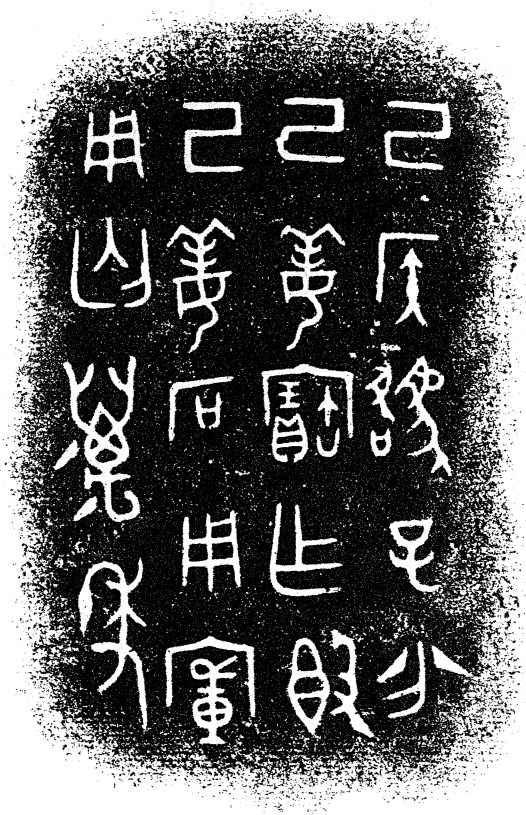 己𥎦貉子分
己姜寶乍𣪘
己姜石用
用匄萬年